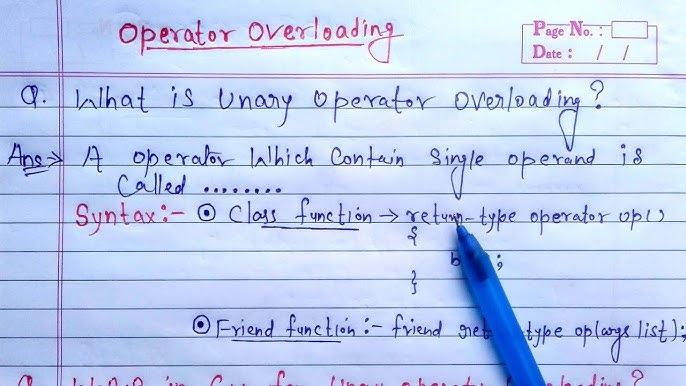 Operator Overloading
Page No. :
Date : / /
Q. What is Unary Operator Overloading?
Ans → A operator Which Contain Single operand is
Called ........
Syntax:- ⊙ Class function → return-type operator op()
{
;
}
⊙ Friend function :- friend type op(args list);